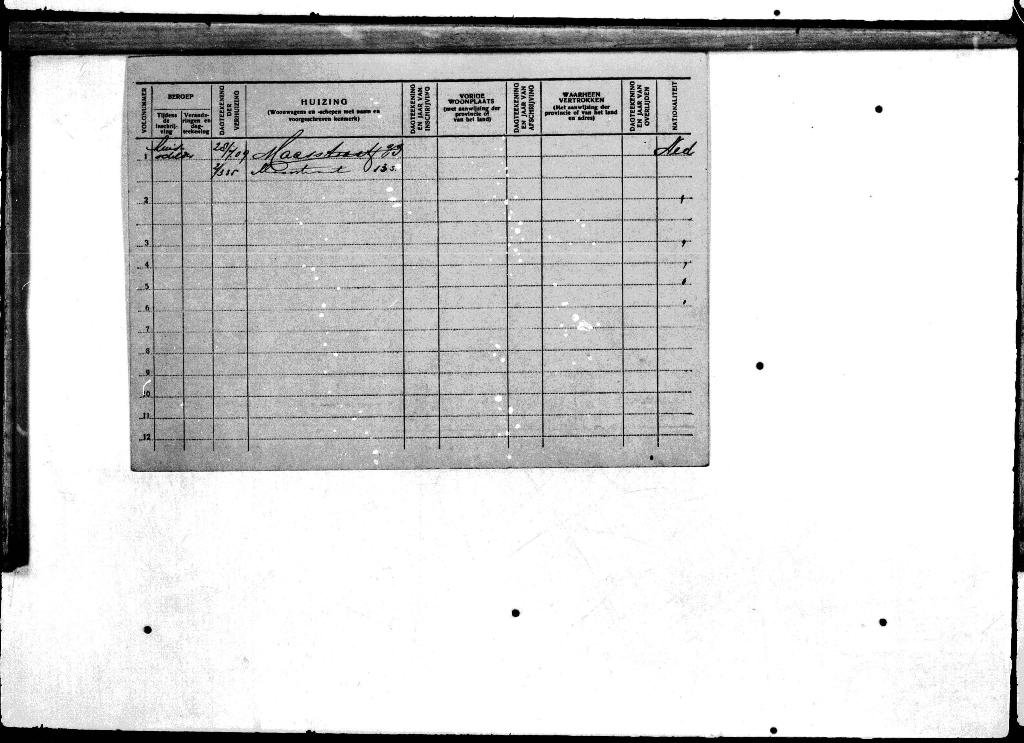 VOLGNUMMER
BEROEP
Tijdens de inschrijving
Veranderingen en dagteekening
DAGTEEKENING DER VERHUIZING
HUIZING
(Woonwagens en -schepen met naam en
voorgeschreven kenmerk)
DAGTEEKENING EN JAAR VAN INSCHRIJVING
VORIGE
WOONPLAATS
(met aanwijzing der
provincie of
van het land)
DAGTEEKENING EN JAAR VAN AFSCHRIJVING
WAARHEEN
VERTROKKEN
(Met aanwijzing der
provincie of van het land
en adres)
DAGTEEKENING EN JAAR VAN OVERLIJDEN
NATIONALITEIT
1 Maasstraat Ned
2
3
4
5
6
7
8
9
10
11
12